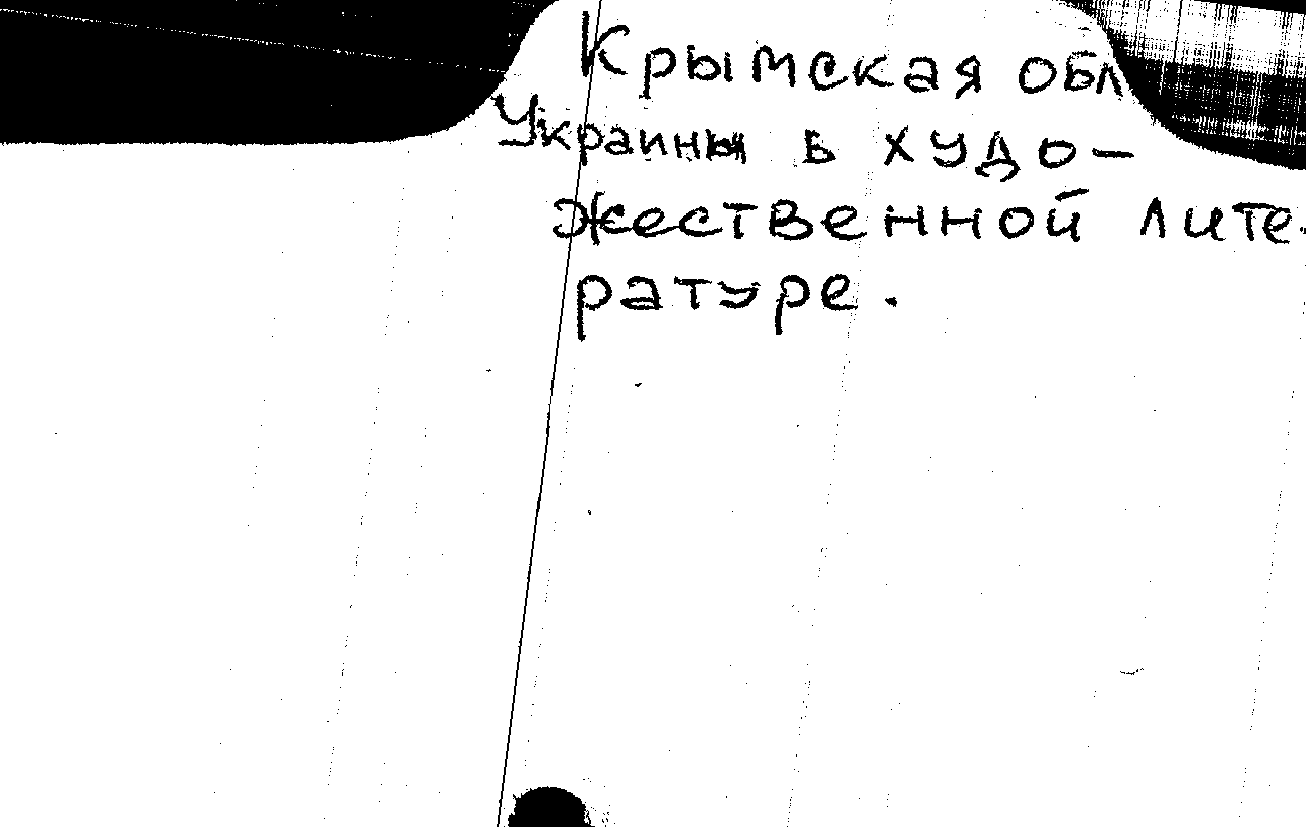 Крымская обл
Украины в худо-
жественной лите-
ратуре.